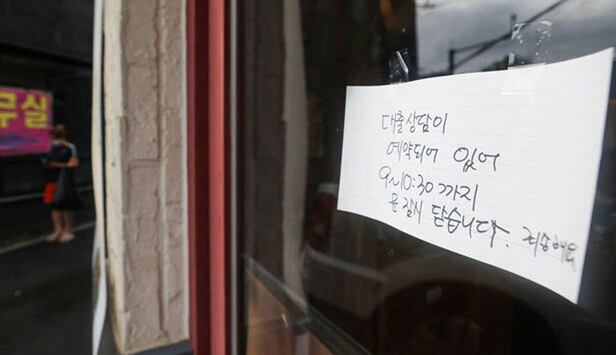 무실
대출상담이
예약되어 있어
9~10:30 까지
문 잠시 닫습니다. 죄송해요